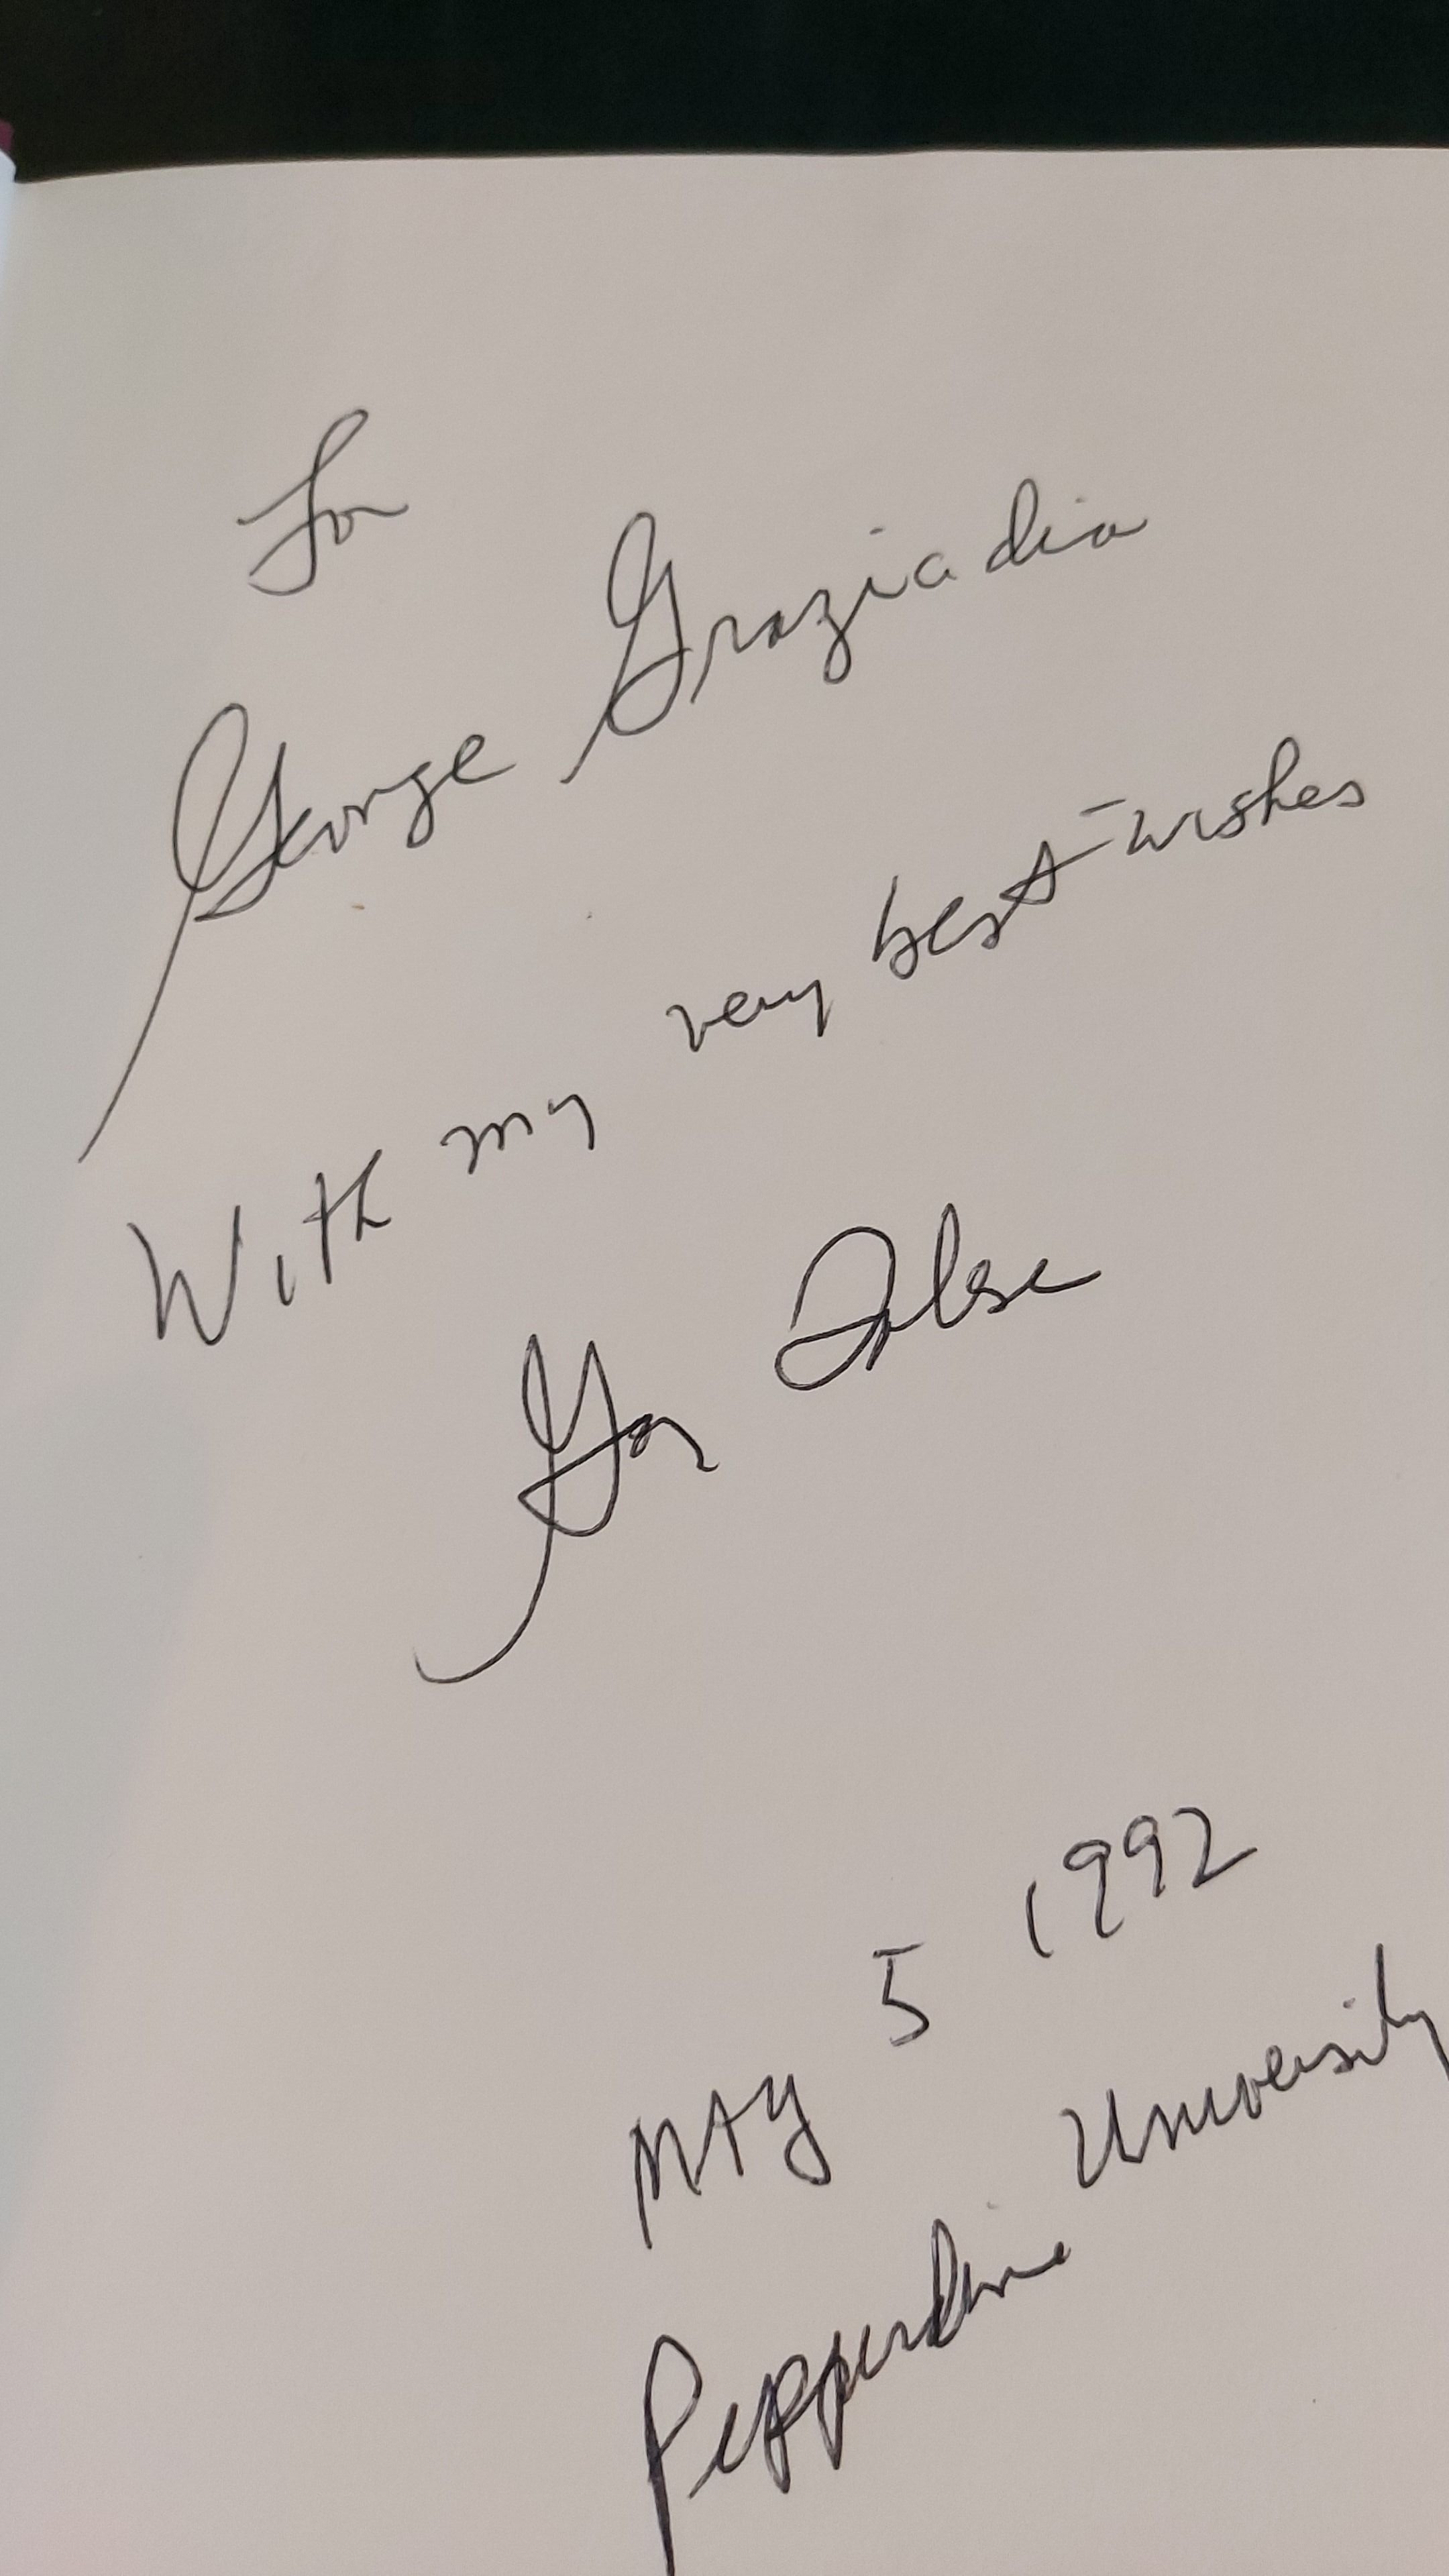 For
George Graziadio
With my very best wishes
May 5 1992
Pepperdine University